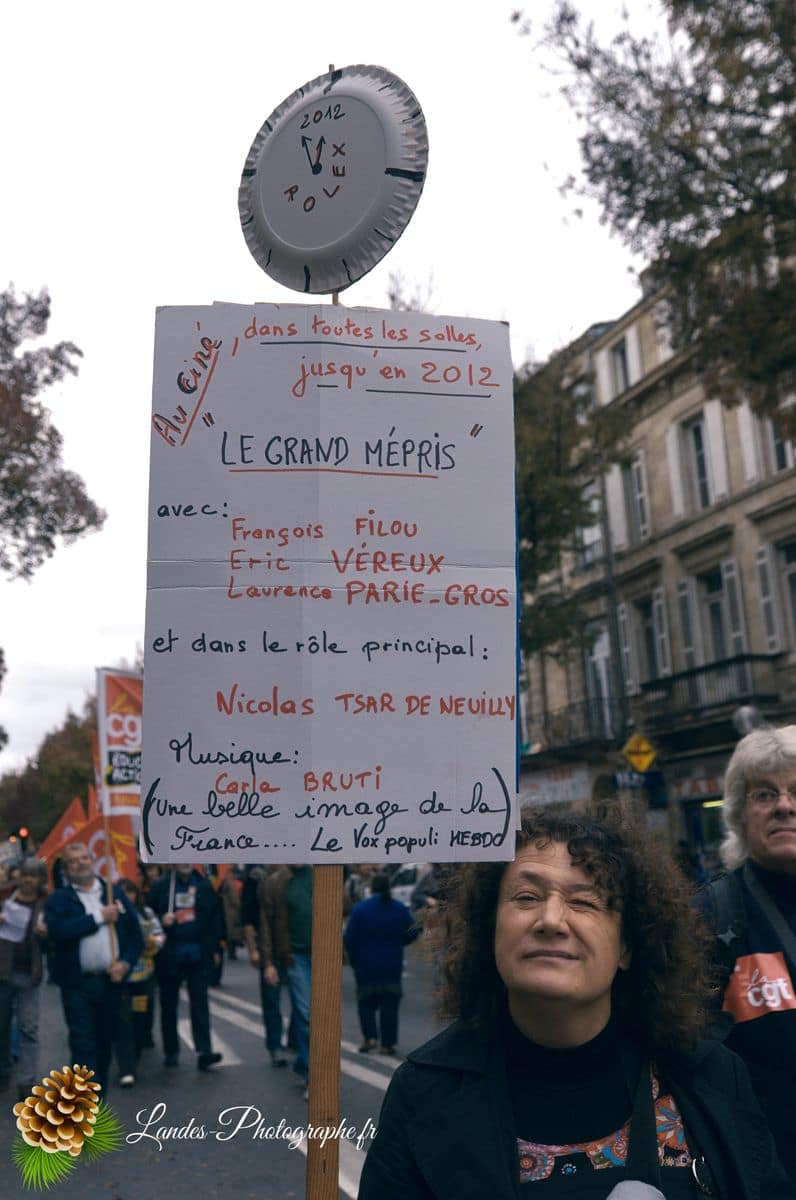 2012
ROLEX
Au Ciné, dans toutes les salles,
jusqu'en 2012
"LE GRAND MÉPRIS"
avec:
François FILOU
Eric VÉREUX
Laurence PARIE-GROS
et dans le rôle principal:
Nicolas TSAR DE NEUILLY
Musique:
Carla BRUTI
(Une belle image de la
France.... Le Vox populi HEBDO)
cgt
ÉDUC'
ACTION
la
cgt
Landes-Photographe.fr